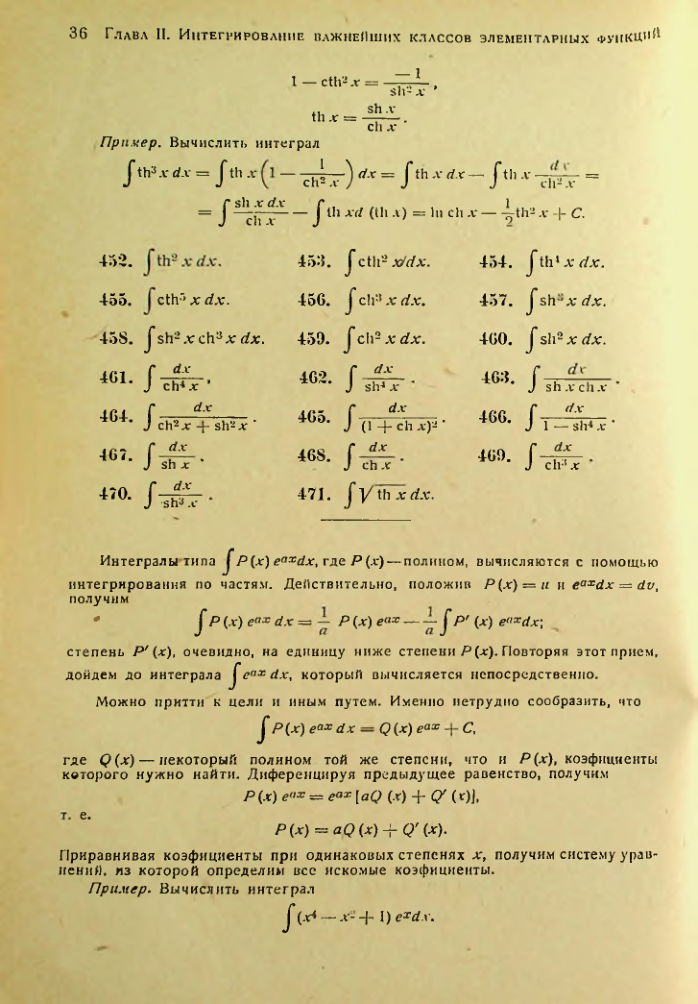 36 Глава II. Интегрирование важнейших классов элементарных функций
1 — cth² x = —1 / sh² x ,
th x = sh x / ch x .
Пример. Вычислить интеграл
∫ th³ x dx = ∫ th x (1 — 1 / ch² x) dx = ∫ th x dx — ∫ th x dx / ch² x =
= ∫ sh x dx / ch x — ∫ th xd (th x) = ln ch x — 1/2 th² x + C.
452. ∫ th² x dx. 453. ∫ cth² x dx. 454. ∫ th⁴ x dx.
455. ∫ cth⁵ x dx. 456. ∫ ch³ x dx. 457. ∫ sh³ x dx.
458. ∫ sh² x ch³ x dx. 459. ∫ ch² x dx. 460. ∫ sh² x dx.
461. ∫ dx / ch⁴ x . 462. ∫ dx / sh⁴ x . 463. ∫ dx / sh x ch x .
464. ∫ dx / ch² x + sh² x . 465. ∫ dx / (1 + ch x)² . 466. ∫ dx / 1 — sh⁴ x .
467. ∫ dx / sh x . 468. ∫ dx / ch x . 469. ∫ dx / ch³ x .
470. ∫ dx / sh³ x . 471. ∫ √th x dx.
Интегралы типа ∫ P (x) eᵃˣdx, где P (x) — полином, вычисляются с помощью
интегрирования по частям. Действительно, положив P (x) = u и eᵃˣdx = dv,
получим
∫ P (x) eᵃˣ dx = 1/a P (x) eᵃˣ — 1/a ∫ P′ (x) eᵃˣdx;
степень P′ (x), очевидно, на единицу ниже степени P (x). Повторяя этот прием,
дойдем до интеграла ∫ eᵃˣ dx, который вычисляется непосредственно.
Можно притти к цели и иным путем. Именно нетрудно сообразить, что
∫ P (x) eᵃˣ dx = Q (x) eᵃˣ + C,
где Q (x) — некоторый полином той же степени, что и P (x), коэфициенты
которого нужно найти. Диференцируя предыдущее равенство, получим
P (x) eᵃˣ = eᵃˣ [aQ (x) + Q′ (x)],
т. е.
P (x) = aQ (x) + Q′ (x).
Приравнивая коэфициенты при одинаковых степенях x, получим систему урав-
нений, из которой определим все искомые коэфициенты.
Пример. Вычислить интеграл
∫ (x⁴ — x² + 1) eˣdx.